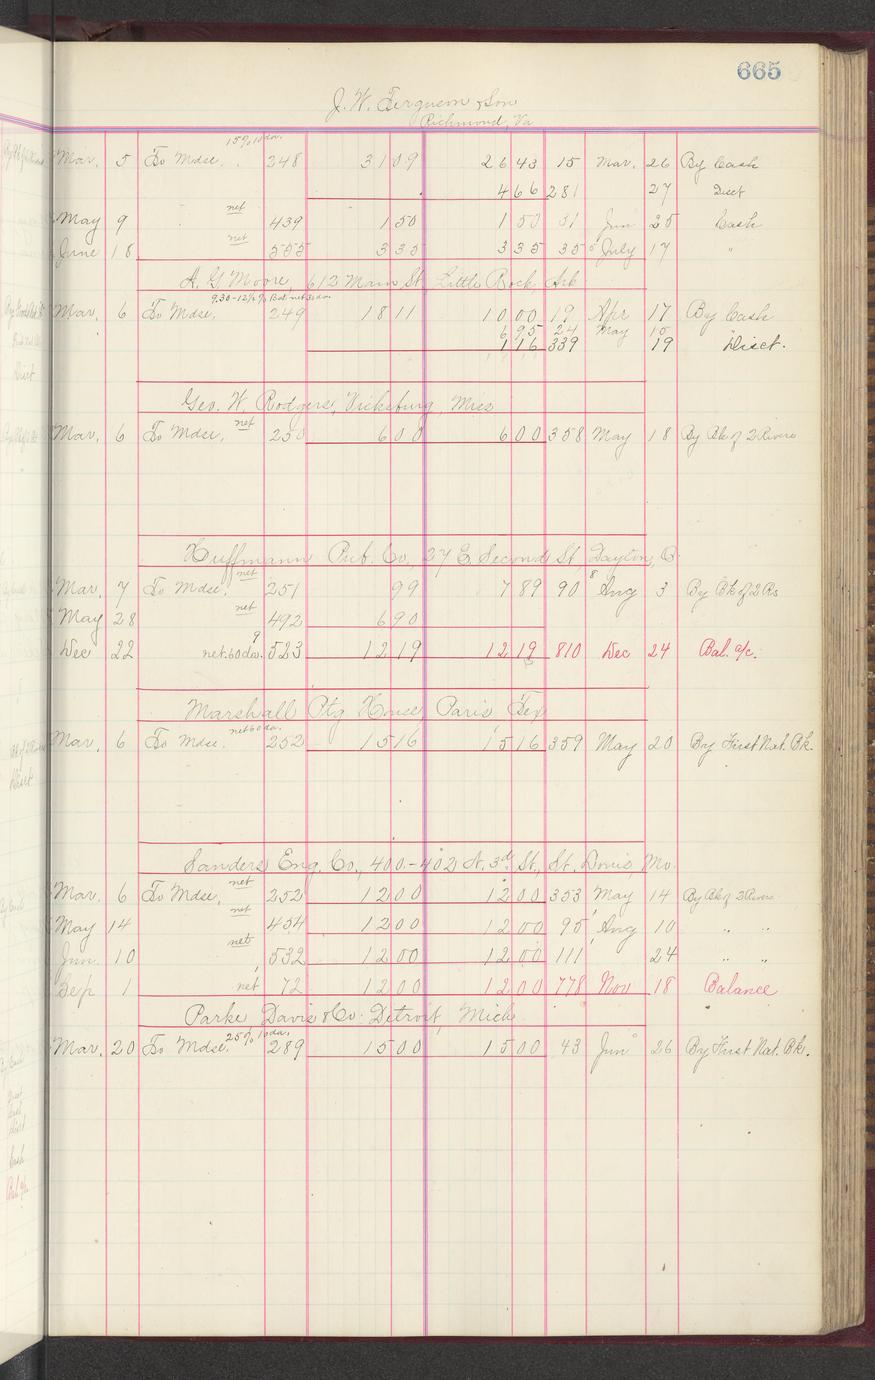 665
J. W. Ferguson & Son
Richmond, Va
15% 10 da.
Mar. 5 To Mdse. 248 31 09 26 43 15 Mar. 26 By Cash
4 66 281 27 Disct
May 9 net 439 1 50 1 50 31 Jun 25 Cash
June 18 net 555 3 35 3 35 35 July 17 "
A. G. Moore, 612 Main St, Little Rock, Ark
Mar. 6 To Mdse. 249 18 11 10 00 19 Apr 17 By Cash
6 95 24 May 15 "
1 16 339 19 Disct.
Geo. W. Rodgers, Vicksburg, Miss
Mar. 6 To Mdse, net 250 6 00 6 00 358 May 18 By Bk of 2 Rivers
Huffmann Pub. Co., 27 E. Second St, Dayton, O.
Mar. 7 To Mdse. net 251 99 7 89 90 Aug 3 By Bk of 2 Rs
May 28 net 492 6 90
Dec 22 net 60 da. 523 12 19 12 19 810 Dec 24 Bal. a/c.
Marshall Ptg House, Paris, Tex
Mar. 6 To Mdse. net 60 da. 252 15 16 15 16 359 May 20 By First Nat. Bk.
Sanders Eng. Co., 400-402 N. 3d St., St. Louis, Mo.
Mar. 6 To Mdse, net 252 12 00 12 00 353 May 14 By Bk of 2 Rivers
May 14 net 454 12 00 12 00 95 Aug 10 " "
Jun. 10 net 532 12 00 12 00 111 24 " "
Sep 1 net 72 12 00 12 00 778 Nov 18 Balance
Parke Davis & Co. Detroit, Mich
Mar. 20 To Mdse. 25% 10 da. 289 15 00 15 00 43 Jun 26 By First Nat. Bk.